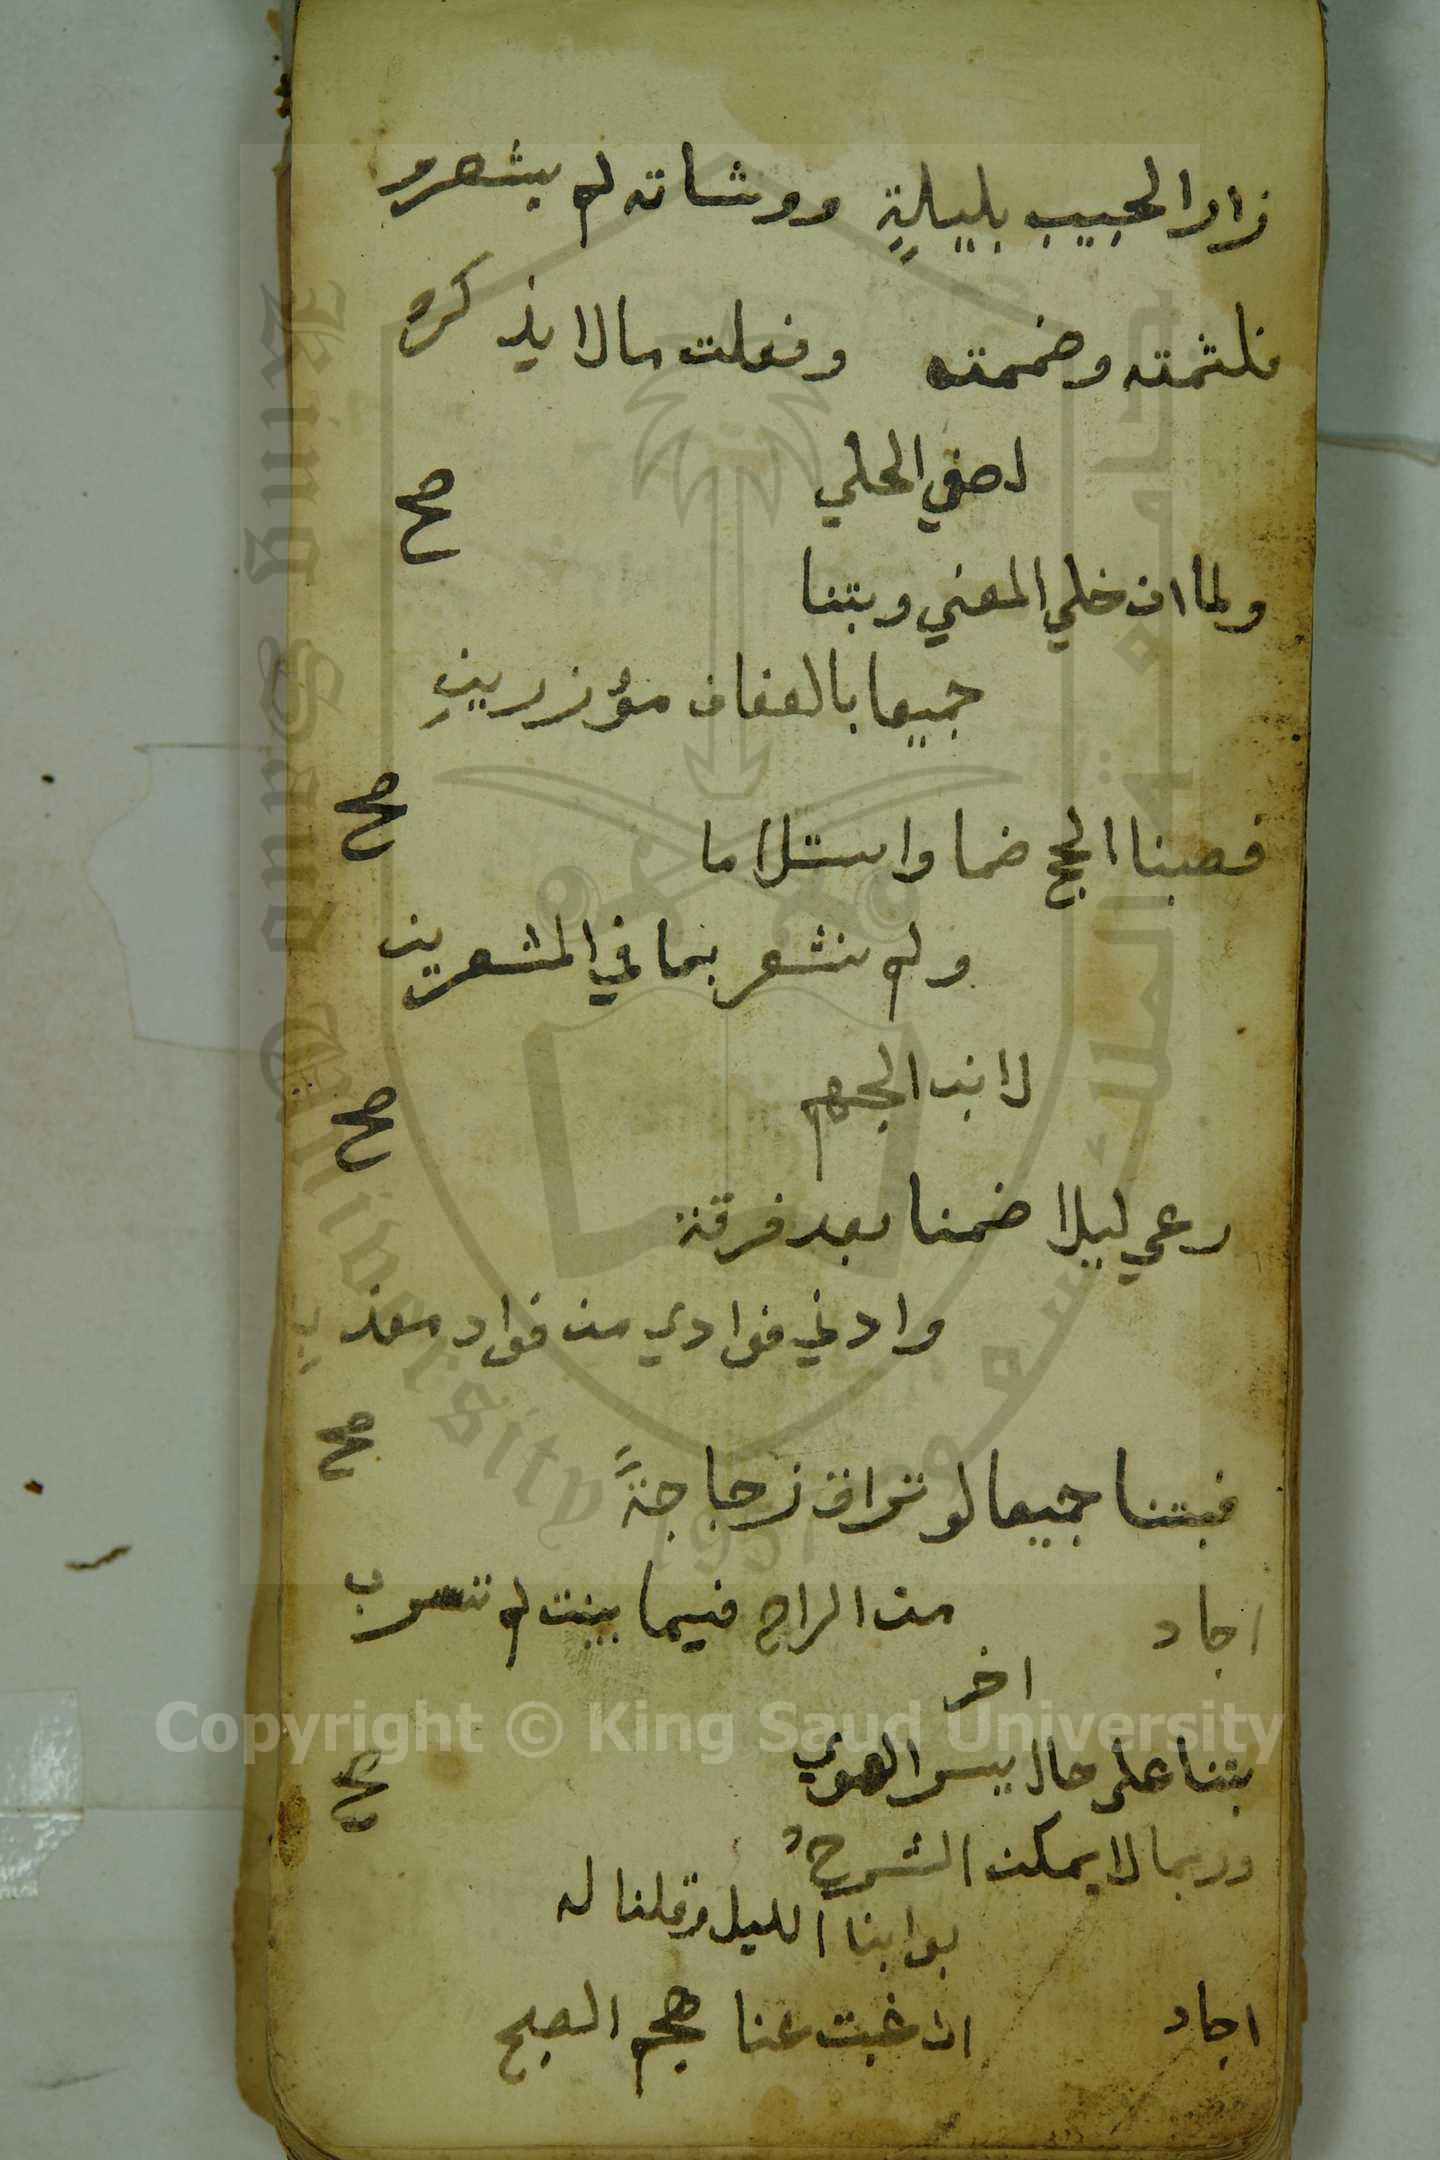 زار الحبيب بليلةٍ ووشاته لم يشعرو
فلثمته وضممته وفعلت ما لا يذكره
لصفي الحلي
صح
ولما ان خلي المغني وبتنا
جميعا بالعفاف مؤزرينِ
صح
قصبنا الحج ضما واستلاما
ولم نشعر بما في المشعرين
لابن الجهم
صح
رعي ليلا ضمنا بعد فرقة
وادني فوادي من فواد معذبِ
صح
فبتنا جميعا لو تراق زجاجةً
من الراح فيما بيننت لم تسرب
اجاد
اخر
بتنا على حال يسر الهوي
صح
وربما لا يمكن الشرحُ
بوابنا الليل وقلنا له
ان غبت عنا هجم الصبح
اجاد
Copyright © King Saud University
King Saud University
جامعة الملك سعود
1957